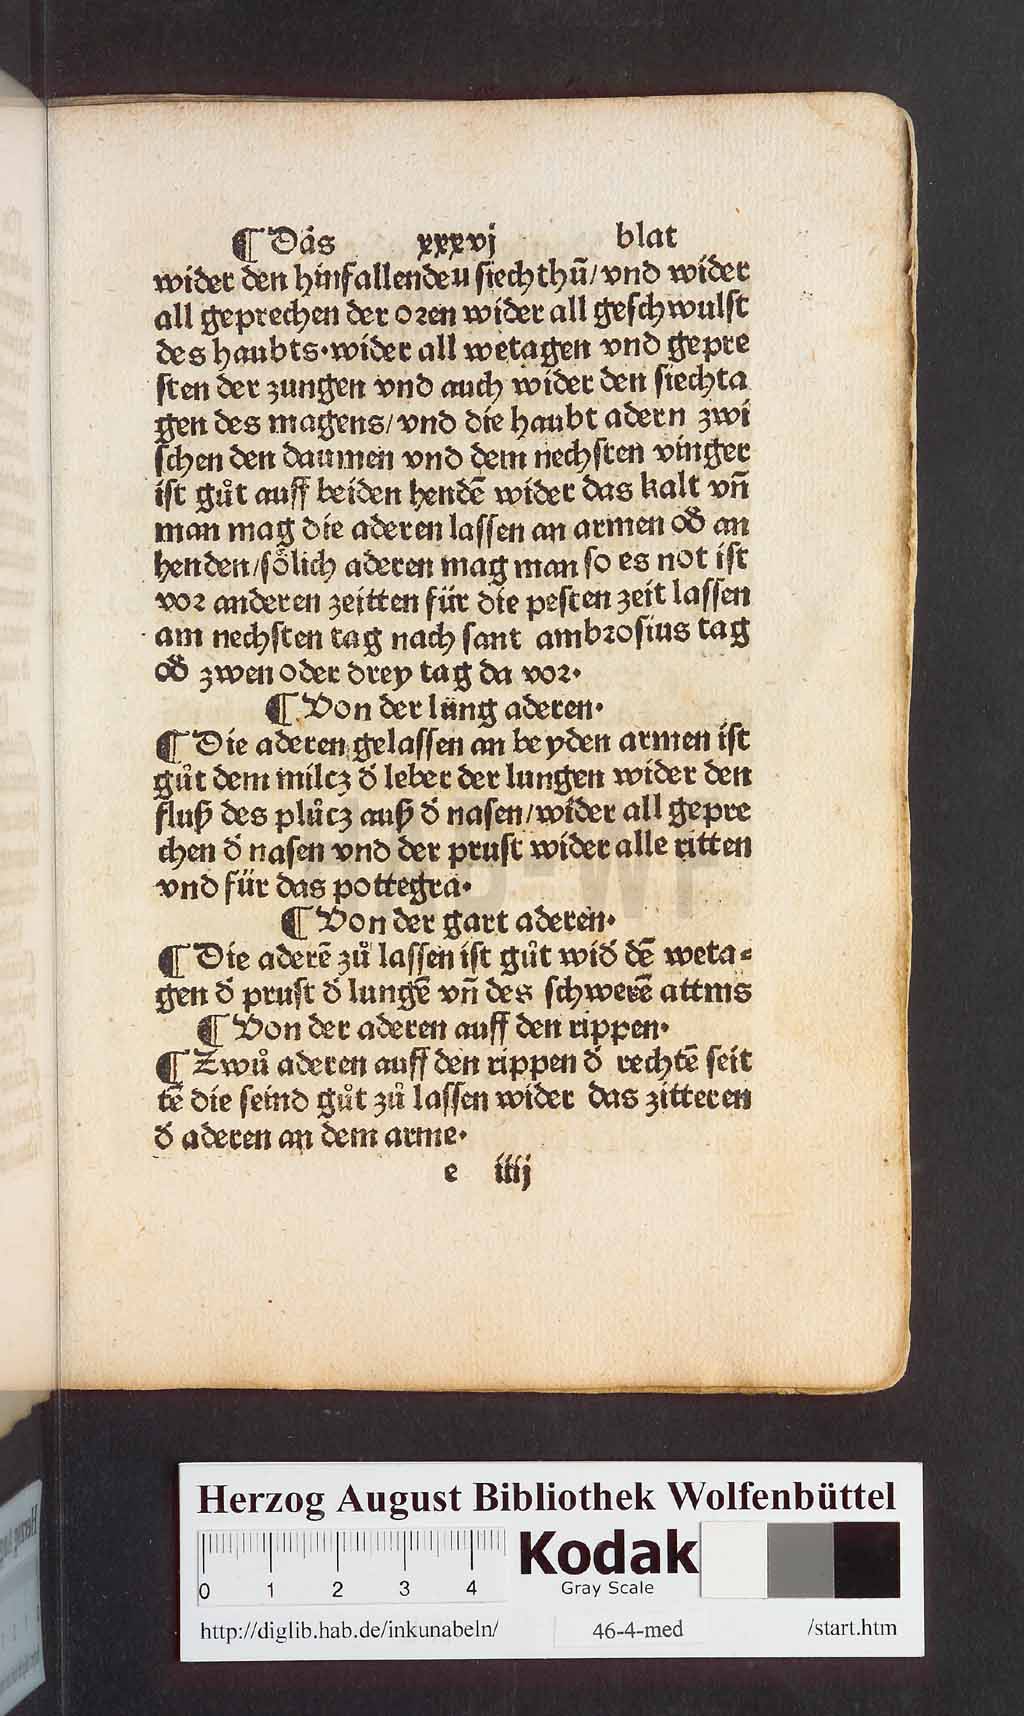 ¶ Das xxxvj blat
wider den hinfallenden siechthū/vnd wider
all geprechen der oren wider all geschwulst
des haubts·wider all wetagen vnd gepre
sten der zungen vnd auch wider den siechta
gen des magens/vnd die haubt adern zwi
schen den daumen vnd dem nechsten vinger
ist gůt auff beiden hendē wider das kalt vn̄
man mag die aderen lassen an armen od̓ an
henden/soͤlich aderen mag man so es not ist
vor anderen zeitten für die pesten zeit lassen
am nechsten tag nach sant ambrosius tag
od̓ zwen oder drey tag da vor·
¶ Von der lüng aderen·
¶ Die aderen gelassen an beyden armen ist
gůt dem milcz d̓ leber der lungen wider den
fluß des plůcz auß d̓ nasen/wider all gepre
chen d̓ nasen vnd der prust wider alle ritten
vnd für das pottegra·
¶ Von der gart aderen·
¶ Die aderē zů lassen ist gůt wid̓ dē weta⸗
gen d̓ prust d̓ lungē vn̄ des schwerē attms
¶ Von der aderen auff den rippen·
¶ Zwů aderen auff den rippen d̓ rechtē seit
tē die seind gůt zů lassen wider das zitteren
d̓ aderen an dem arme·
e iiij
HAB-WF
Herzog August Bibliothek Wolfenbüttel
0 1 2 3 4
Kodak
Gray Scale
http://diglib.hab.de/inkunabeln/ 46-4-med /start.htm